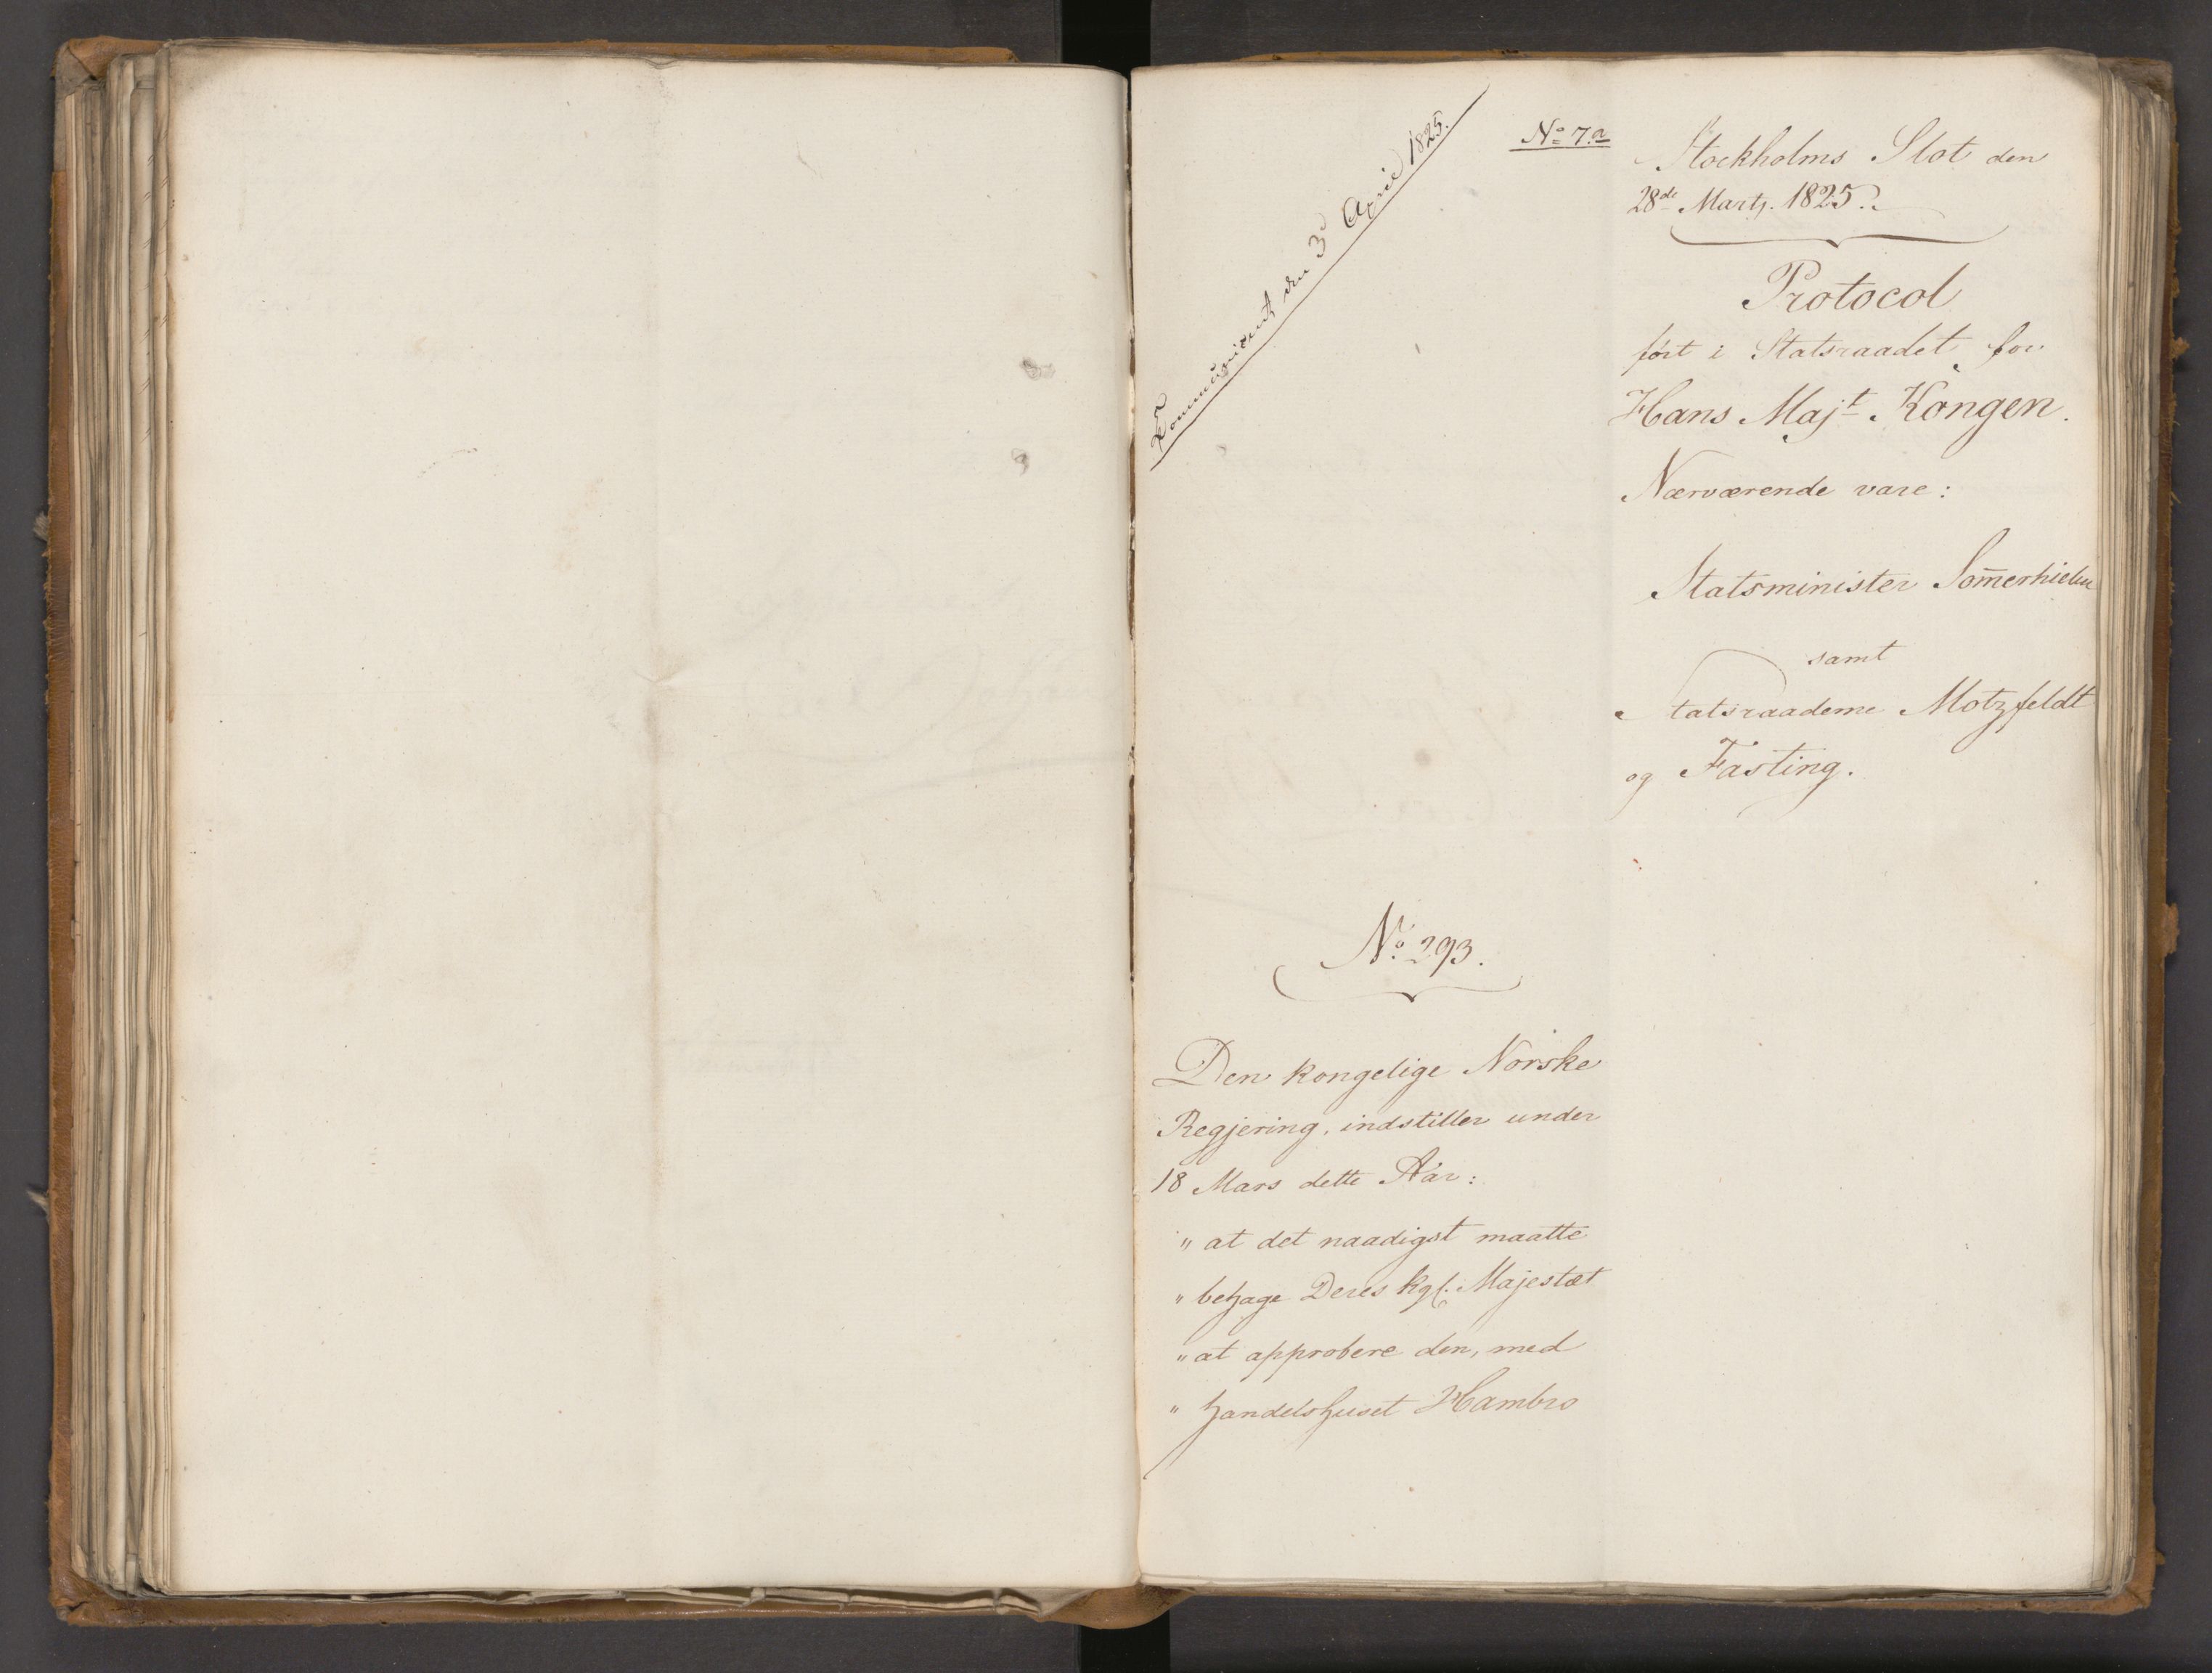 Communiceret den 3 April 1825.
No 7.a
Stockholms Slot den
28de Martz. 1825.
Protocol
ført i Statsraadet for
Hans Majt Kongen.
Nærværende vare:
Statsminister Som̄erhielm
samt
Statsraaderne Motzfeldt
og Fasting.
No. 293.
Den kongelige Norske
Regjering, indstiller under
18 Mars dette Aar:
" at det naadigst maatte
" behage Deres kgl. Majestæt
" at approbere den, med
" Handelshuset Hambro